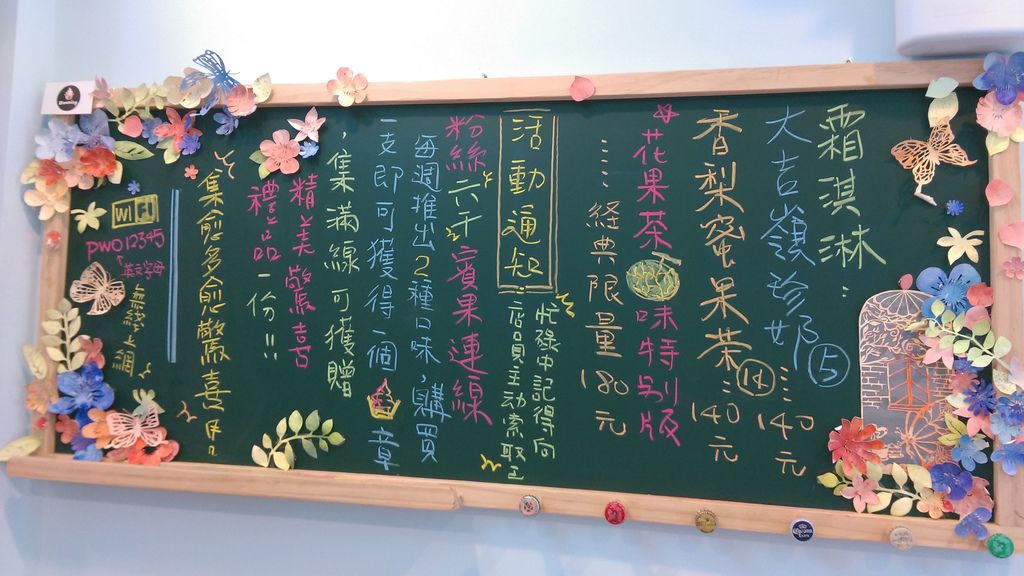 霜淇淋：
大吉嶺珍奶⑤……140元
香梨蜜果茶⑭……140元
花果茶 味特別版
……経典限量180元
活動通知
忙碌中記得向
店員主动索取
粉絲六千賓果連線
每週推出2種口味，購買
一支即可獲得一個 章
，集滿線可獲贈
精美驚喜
禮品一份!!
集愈多愈驚喜
WIFI
PWD12345
英文字母
無線上網